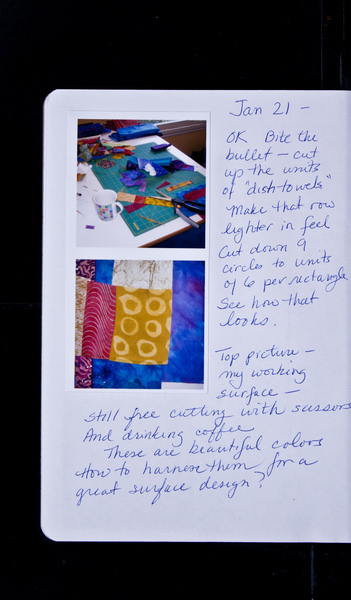 Jan 21 -
OK Bite the
bullet - cut
up the units
of "dish-towels"
Make that row
lighter in feel
Cut down 9
circles to units
of 6 per rectangle
See how that
looks.
Top picture -
my working
surface -
still free cutting with scissors
And drinking coffee
These are beautiful colors
How to harness them for a
great surface design?